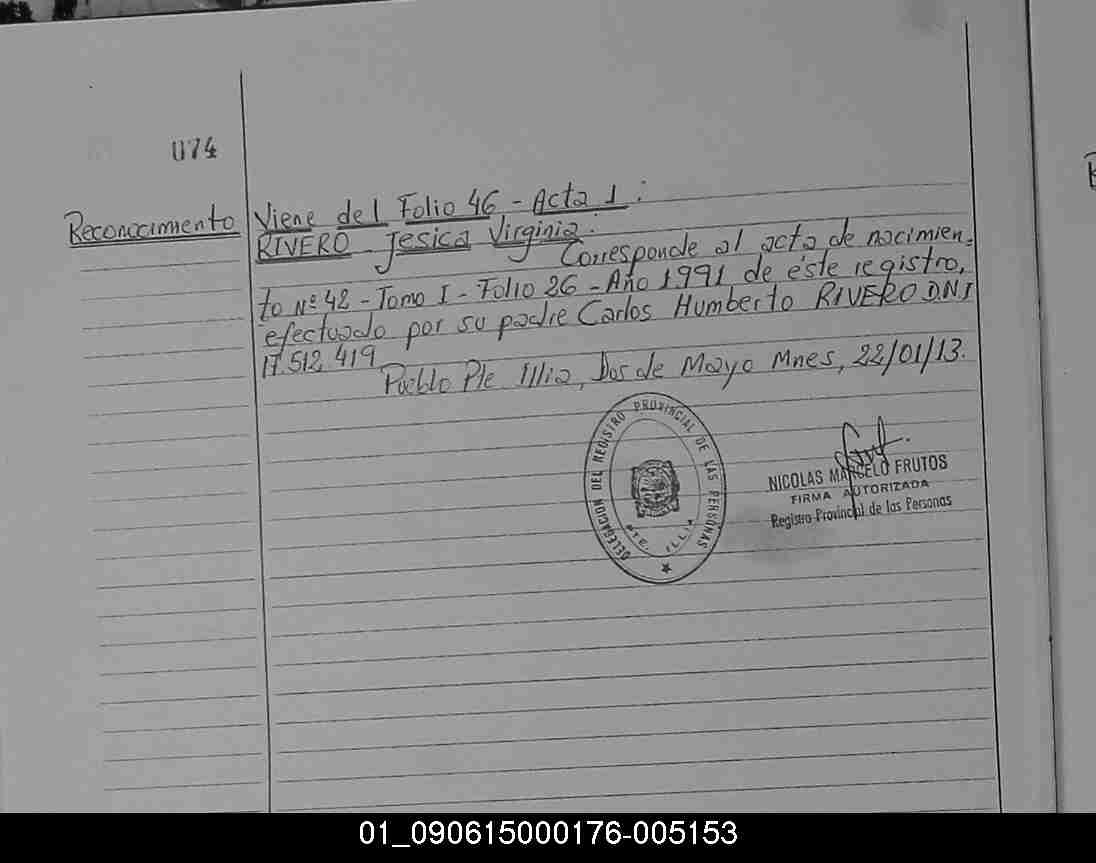 074
Reconocimiento
Viene del Folio 46 - Acta 1:
RIVERO Jesica Virginia.
Corresponde al acta de nacimien-
to Nº 42 - Tomo I - Folio 26 - Año 1991 de éste registro,
efectuado por su padre Carlos Humberto RIVERO D.N.I
17.512.419
Pueblo Pte Illia, Dos de Mayo Mnes, 22/01/13.
DELEGACION DEL REGISTRO PROVINCIAL DE LAS PERSONAS
PTE. ILLIA
NICOLAS MARCELO FRUTOS
FIRMA AUTORIZADA
Registro Provincial de las Personas
01_090615000176-005153